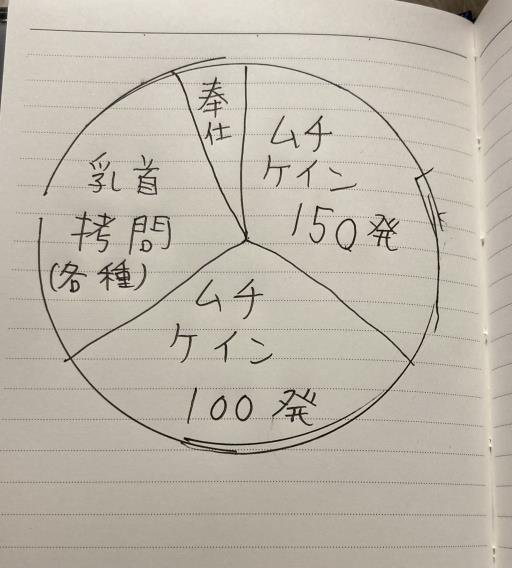 奉
仕
ムチ
ケイン
150発
乳首
拷問
(各種)
ムチ
ケイン
100発